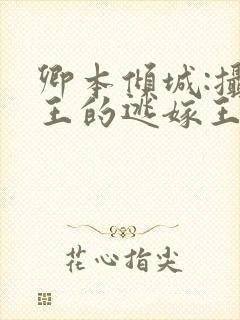 卿本倾城:攝
王的逃嫁王
花心指尖